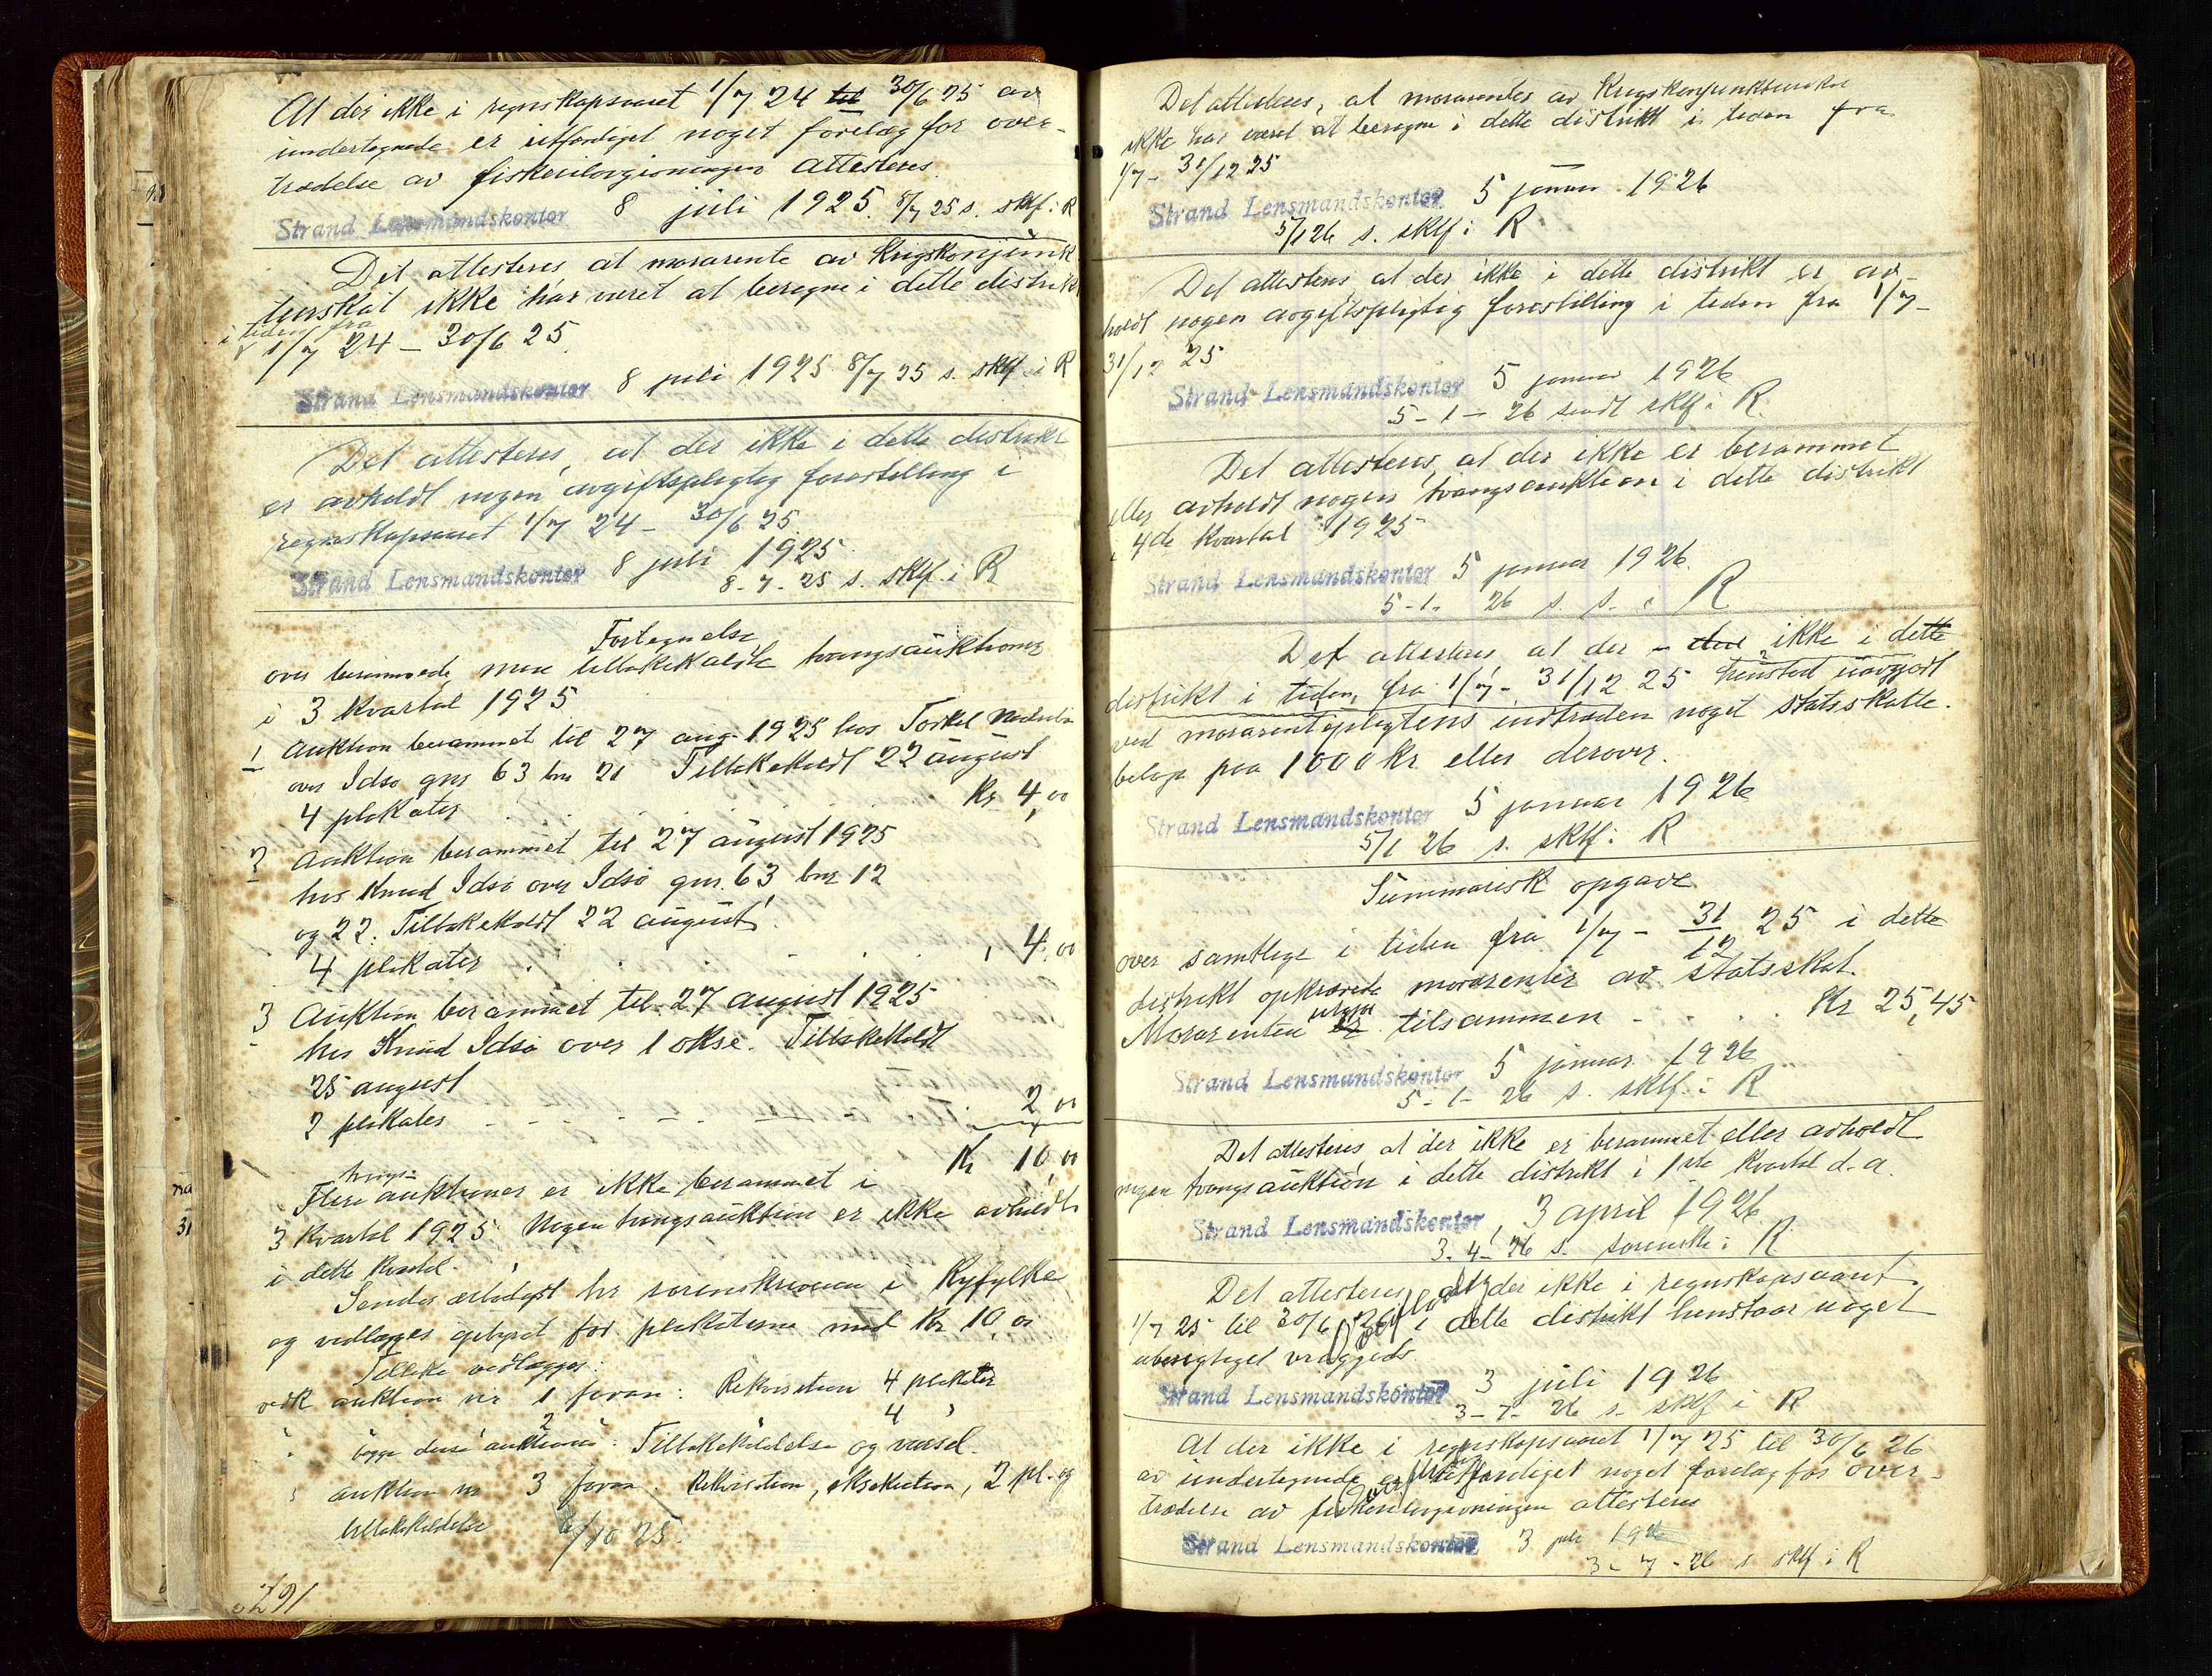 At der ikke i regnskapsaaret 1/7 24 til 30/6 25 av
undertegnede er utfærdiget noget forelæg for over-
trædelse av fiskerilovgivningen attesteres.
Strand Lensmandskontor 8 juli 1925. 8/7 25 s. skrf. i R
Det attesteres, at morarente av Krigskonjunk-
turskat ikke har været at beregne i dette distrikt
i tiden fra
1/7 24 – 30/6 25.
Strand Lensmandskontor 8 juli 1925 8/7 25 s. skrf i R
Det attesteres, at der ikke i dette distrikt
er avholdt nogen avgiftspligtig forestilling i
regnskapsaaret 1/7 24 – 30/6 25.
Strand Lensmandskontor 8 juli 1925.
8-7-25 s. skrf. i R
Fortegnelse
over berammede, men tilbakekaldte tvangsauktioner
i 3 kvartal 1925
1 Auktion berammet til 27 aug. 1925 hos Torkel
over Idsø gnr 63 bnr 21 Tilbakekaldt 22 august
4 plakater . . . . Kr 4,00
2 Auktion berammet til 27 august 1925
hos Knud Idsø over Idsø gnr. 63 bnr 12
og 22. Tilbakekaldt 22 august.
4 plakater . . . . , 4,00
3 Auktion berammet til 27 august 1925
hos Knud Idsø over 1 okse. Tilbakekaldt
25 august
2 plakater - - - - - 2,00
Kr 10,00
tvangs-
Flere auktioner er ikke berammet i
3 kvartal 1925. Nogen tvangsauktion er ikke avholdt
i dette kvartal.
Sendes ærbødigst hr sorenskriveren i Ryfylke
og vedlægges gebyret for plakaterne med Kr 10,00
Tillike vedlægges:
vedk auktion nr 1 foran: Rekvisition 4 plakater
" " 2 4 "
" begge disse auktioner: Tilbakekaldelse og varsel.
" auktion nr 3 foran: Rekvisition, eksekution, 2 pl. og
tilbakekaldelse /10 25.
291
Det attesteres, at morarenter av Krigskonjunkturskat
ikke har været at beregne i dette distrikt i tiden fra
1/7 - 31/12 25
Strand Lensmandskontor 5 januar 1926
5/1 26 s. skrf i R
Det attesteres, at der ikke i dette distrikt er av-
holdt nogen avgiftspligtig forestilling i tiden fra 1/7 -
31/12 25
Strand Lensmandskontor 5 januar 1926
5-1-26 sendt skrf i R.
Det attesteres, at der ikke er berammet
eller avholdt nogen tvangsauktion i dette distrikt
i 4de kvartal 1925
Strand Lensmandskontor 5 januar 1926.
5-1- 26 s. s. i R
Det attesteres at der - der ikke i dette
distrikt i tiden fra 1/7 - 31/12 25 henstod uavgjort
ved morarentepligtens indtræden noget statsskatte-
beløp paa 1000 kr eller derover.
Strand Lensmandskontor 5 januar 1926
5/1 26 s. skrf i R
Summarisk opgave
over samtlige i tiden fra 1/7 - 31/12 25 i dette
distrikt opkrævede morarenter av statsskat.
Morarenten er utgjør tilsammen - . . . Kr 25,45
Strand Lensmandskontor 5 januar 1926
5-1-26 s. skrf. i R
Det attesteres at der ikke er berammet eller avholdt
nogen tvangsauktion i dette distrikt i 1ste kvartal d.a.
Strand Lensmandskontor, 3 april 1926.
3-4-26 s. sorenskr i R
Det attesteres, at der ikke i regnskapsaaret
1/7 25 til 30/6 26 i dette distrikt henstaar noget
uberegtiget vraggods.
Strand Lensmandskontor 3 juli 1926
3-7-26 s. skrf i R
At der ikke i regnskapsaaret 1/7 25 til 30/6 26
av undertegnede er utfærdiget noget forelæg for over-
trædelse av fiskerilovgivningen attesteres
Strand Lensmandskontor 3 juli 1926
3-7-26 s skrf i R